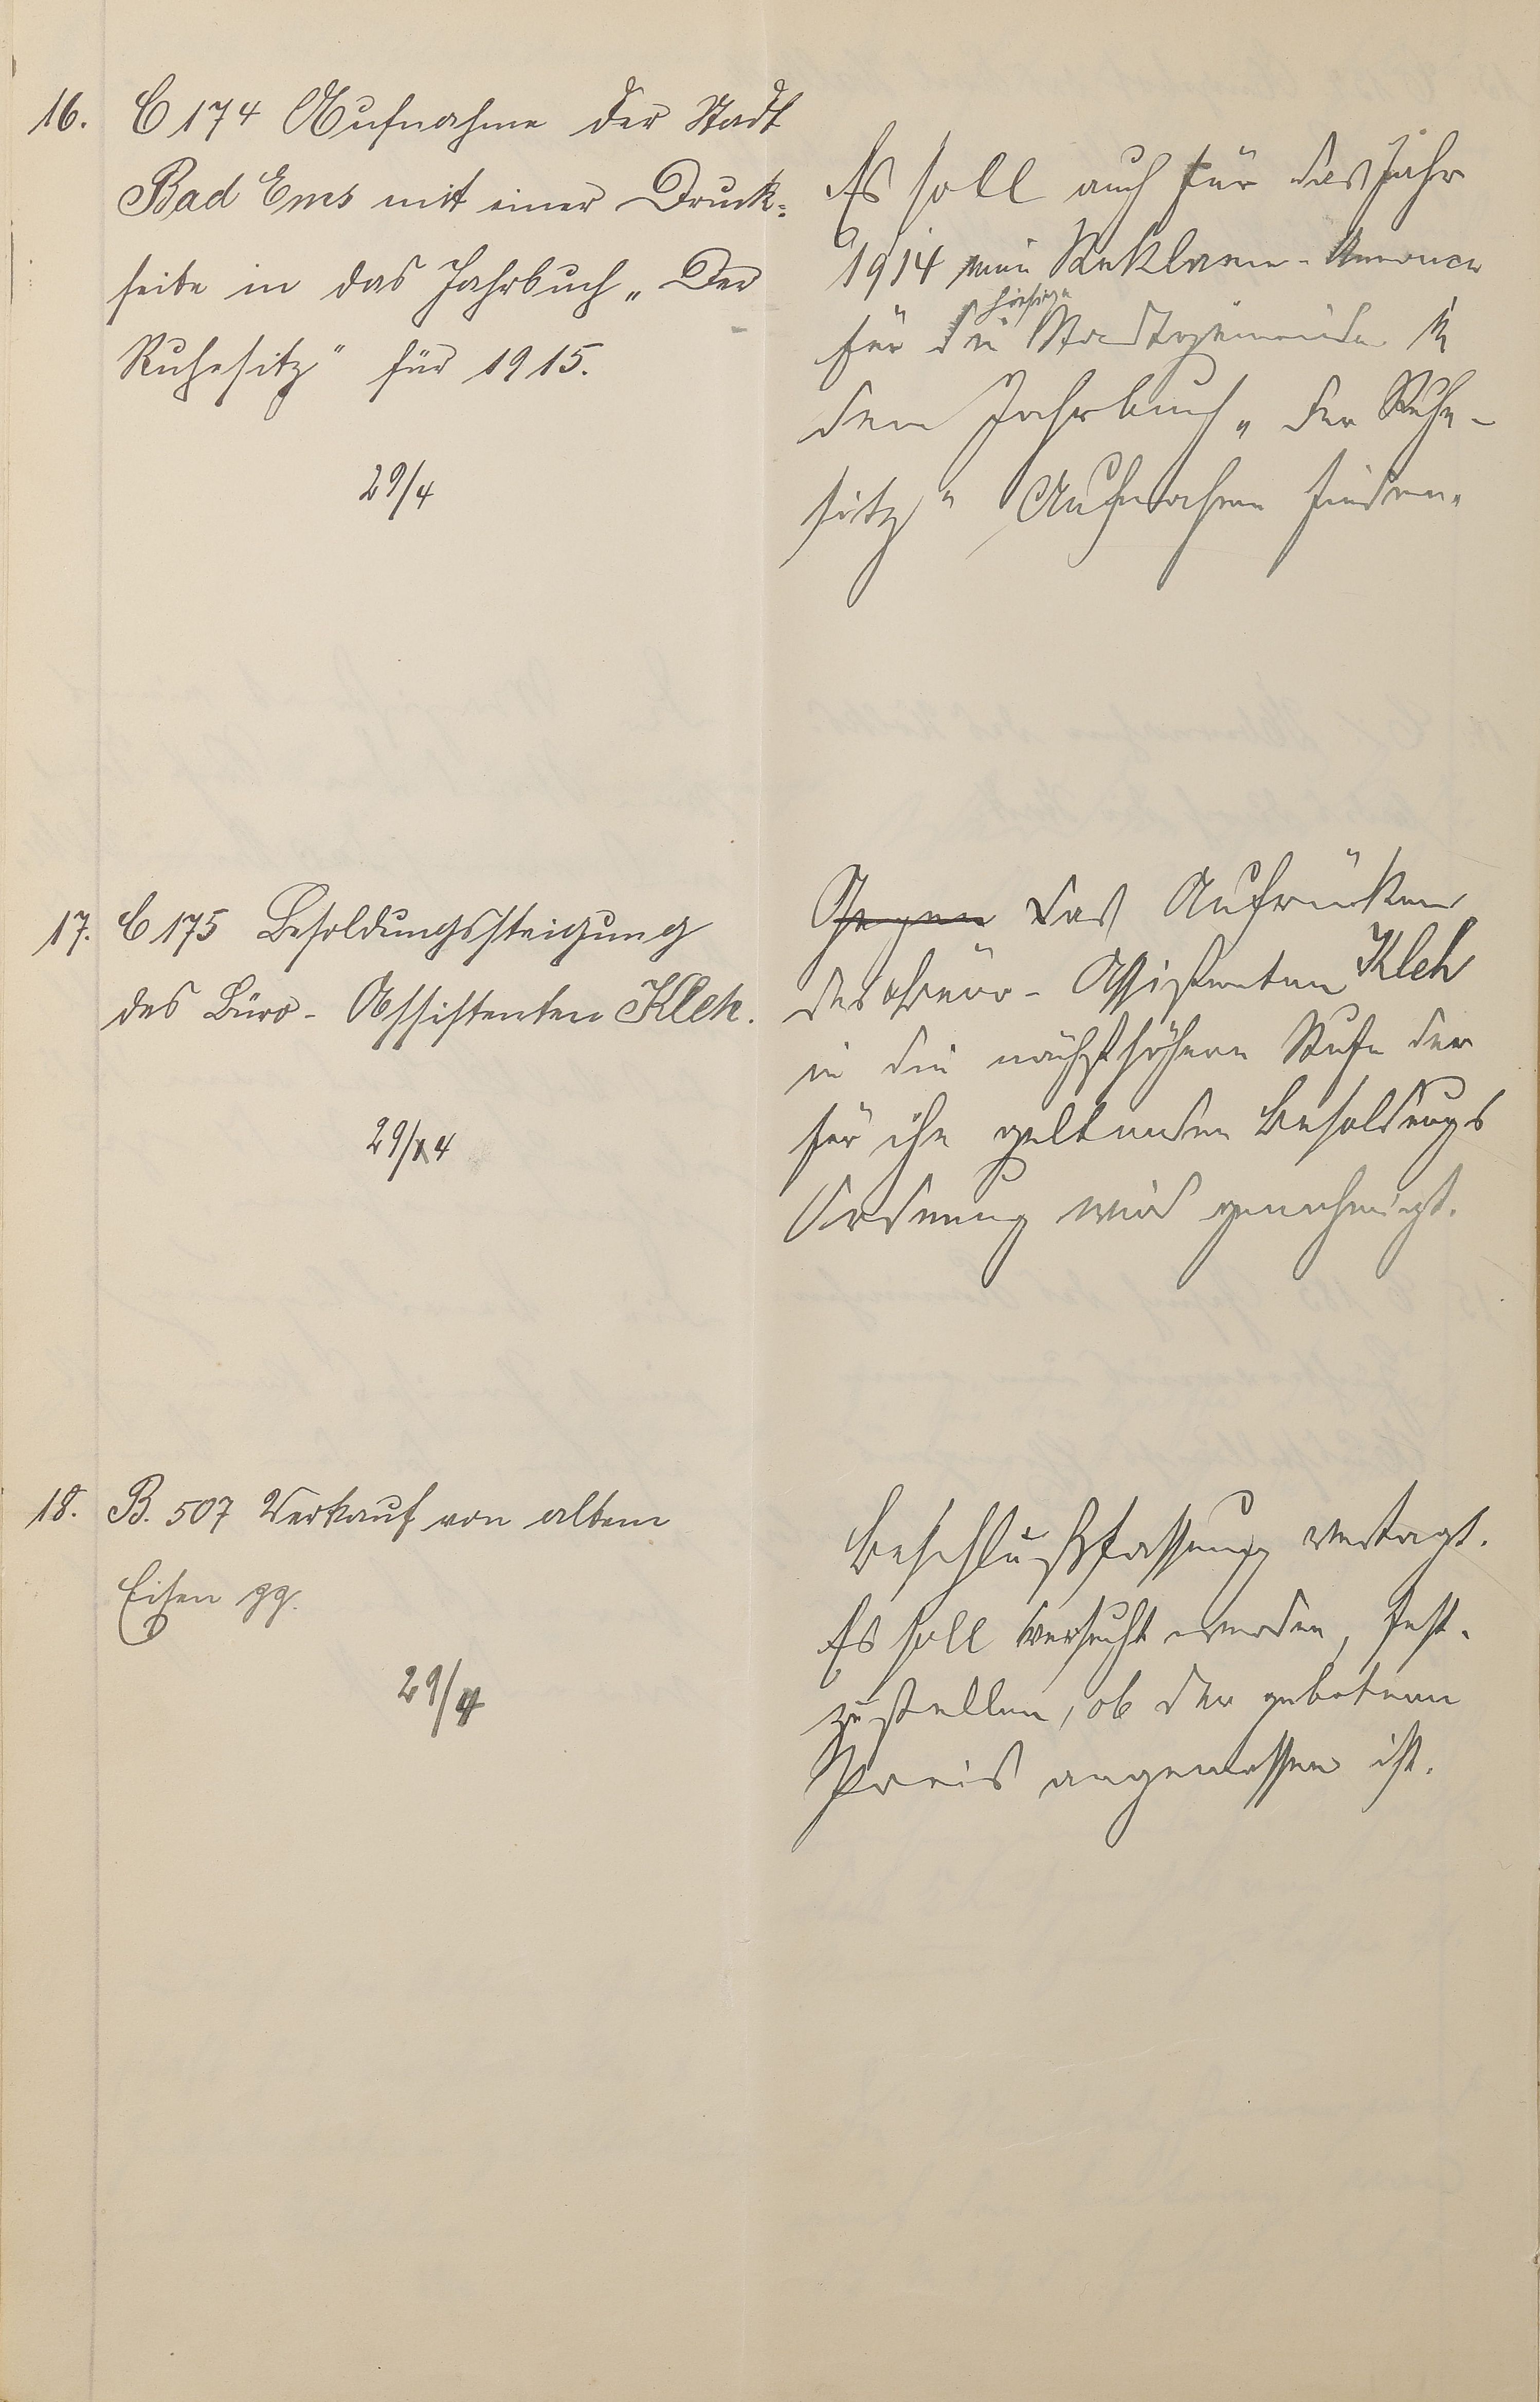 16. C 174 Aufnahme der Stadt
Bad Ems mit einer Druck-
seite in das Jahrbuch „Der
Ruhesitz" für 1915.
29/4
Es soll auch für das Jahr
1914 eine Reklame-Annonce
für die hiesige Stadtgemeinde in
dem Jahrbuch „der Ruhe-
sitz" Aufnahme finden.
17. C 175 Besoldungssteigung
des Büro-Assistenten Kleh.
29/4
Gegen das Aufrücken
des Büro-Assistenten Kleh
in die nächsthöhere Stufe der
für ihn geltenden Besoldungs
Ordnung wird genehmigt.
18. B. 507 Verkauf von altem
Eisen pp.
29/4
Beschlußfassung vertagt.
Es soll versucht werden, fest-
zustellen, ob der gebotene
Preis angemessen ist.